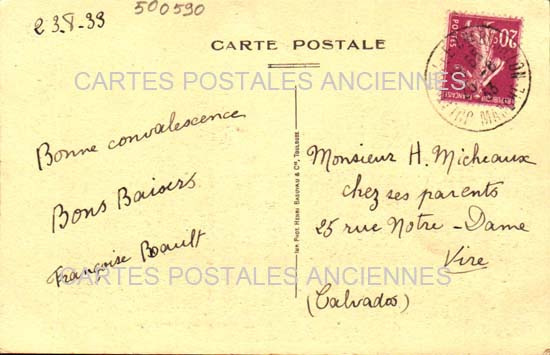 23.8.33
500590
CARTE POSTALE
CARTES POSTALES ANCIENNES
20c
POSTES
Bonne convalescence
Bons Baisers
Françoise Boault
IMP. PHOT. HENRI BASUYAU & Cie, TOULOUSE
Monsieur H. Micheaux
chez ses parents
25 rue Notre-Dame
Vire
(Calvados)
CARTES POSTALES ANCIENNES